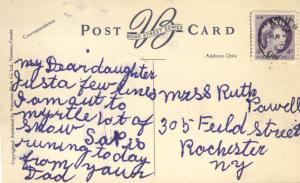 POST CARD
BOND STREET SERIES
Correspondence
Address Only
Copyrighted. Published by Valentine-Black Co., Ltd., Toronto, Canada
my Dear daughter
Just a few lines
I am out to
my little lot of
snow Sap is
running today
from your
Dad
Mrs S Ruth
Powell
305 Feild Street
Rochester
NY